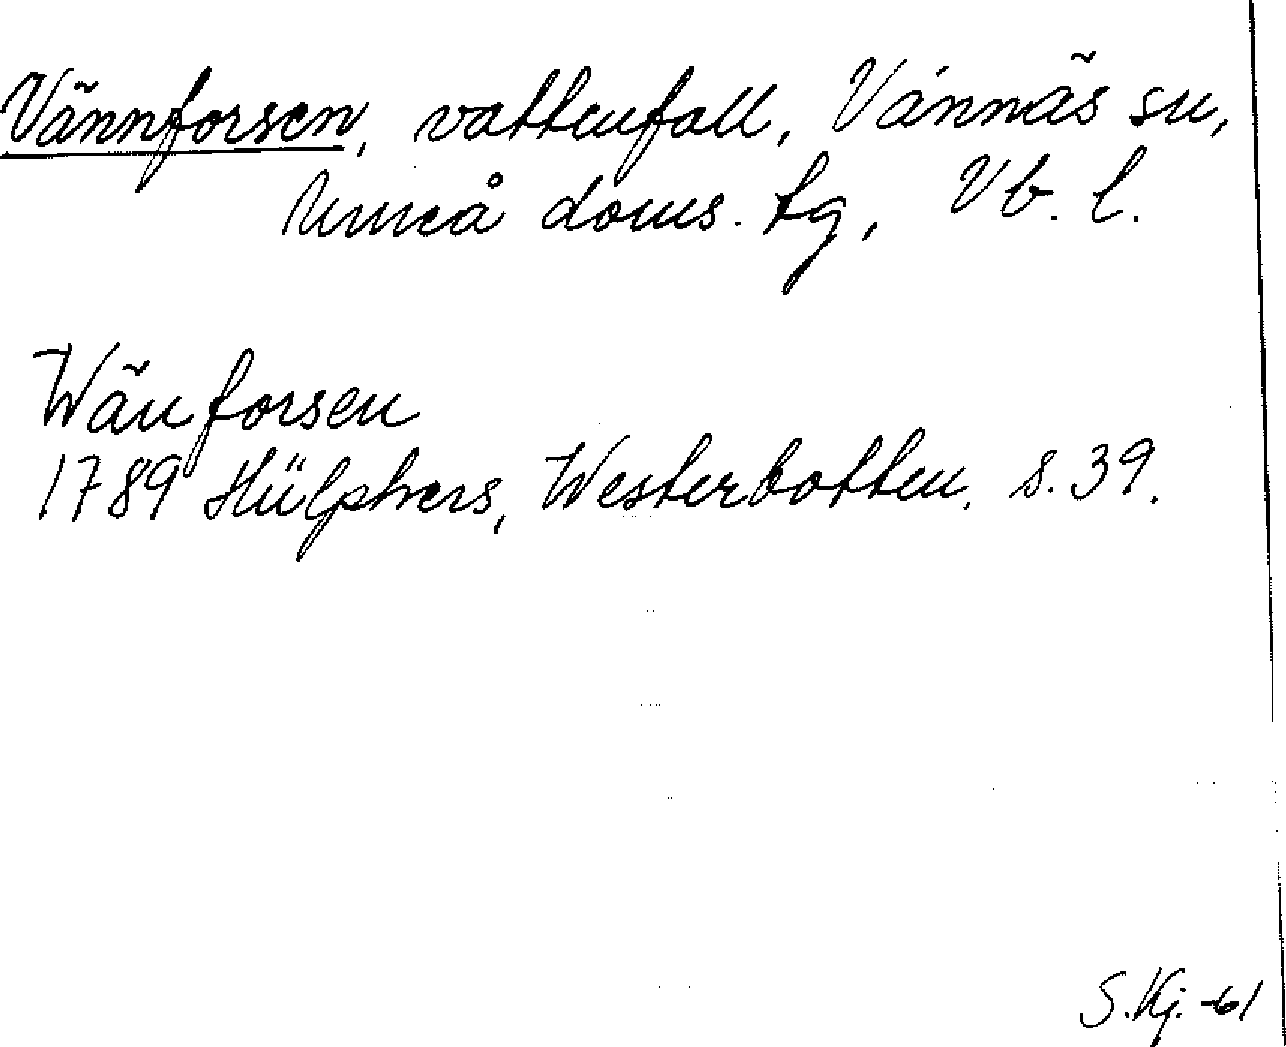 Vännforsen, vattenfall, Vännäs sn,
Umeå doms. tg, Vb. l.
Wänforsen
1789 Hülphers, Westerbotten, s. 39.
S. Kj. -61